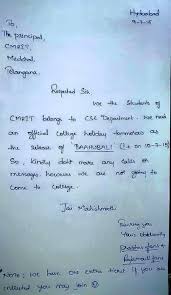 Hyderabad
9-7-15
To,
The principal,
CMRIT,
Medchal,
Telangana.
Respected Sir,
We the students of
CMRIT belongs to CSE Department. We need
an official college holiday tommorow as
the release of "BAAHUBALI" (i.e on 10-7-15)
So, kindly don't make any calls or
messages, because we are not going to
come to college.
Jai Mahishmathi
Yours Obediently,
Prabhas fans &
Rajamouli fans
Note: We have one extra ticket if you are
intrested you may join